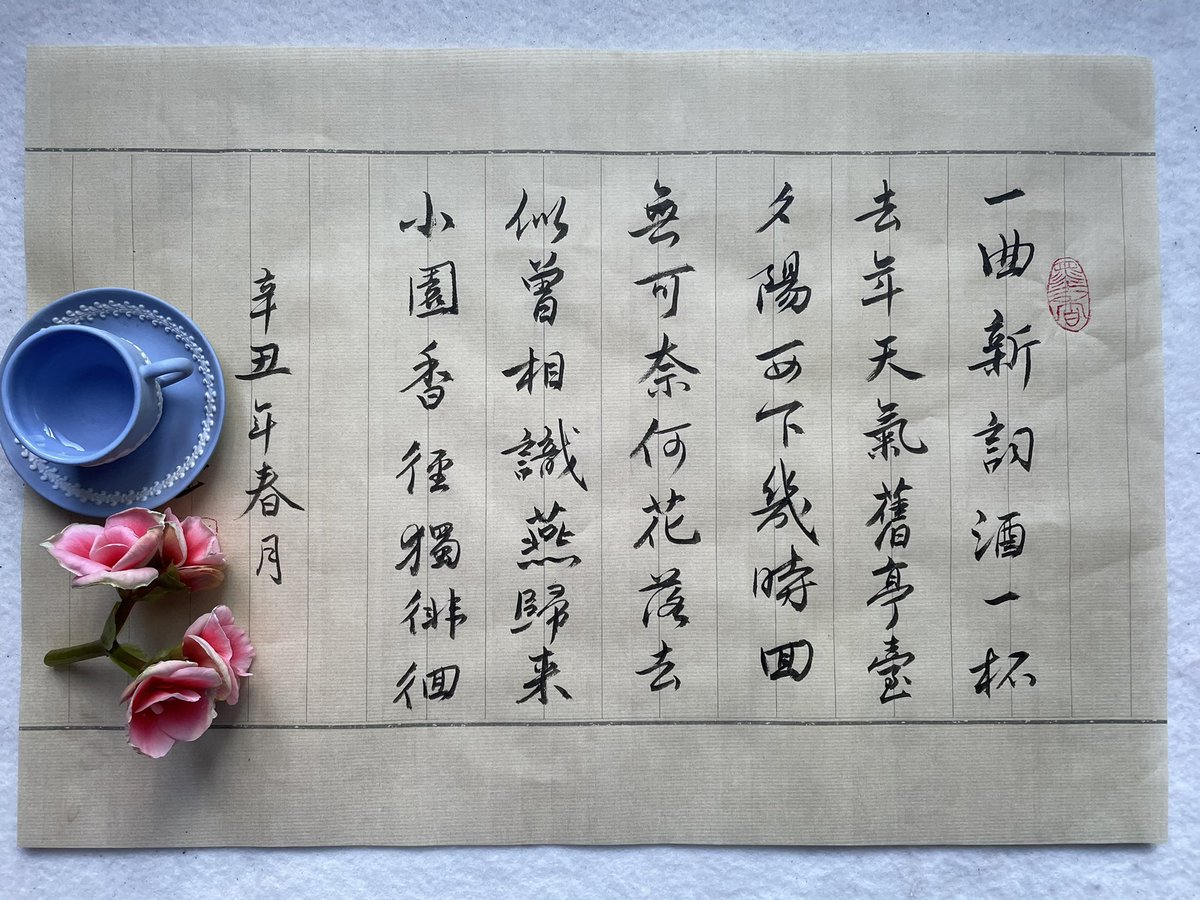 一曲新詞酒一杯
去年天氣舊亭臺
夕陽西下幾時回
無可奈何花落去
似曾相識燕歸来
小園香徑獨徘徊
辛丑年春月
墨香